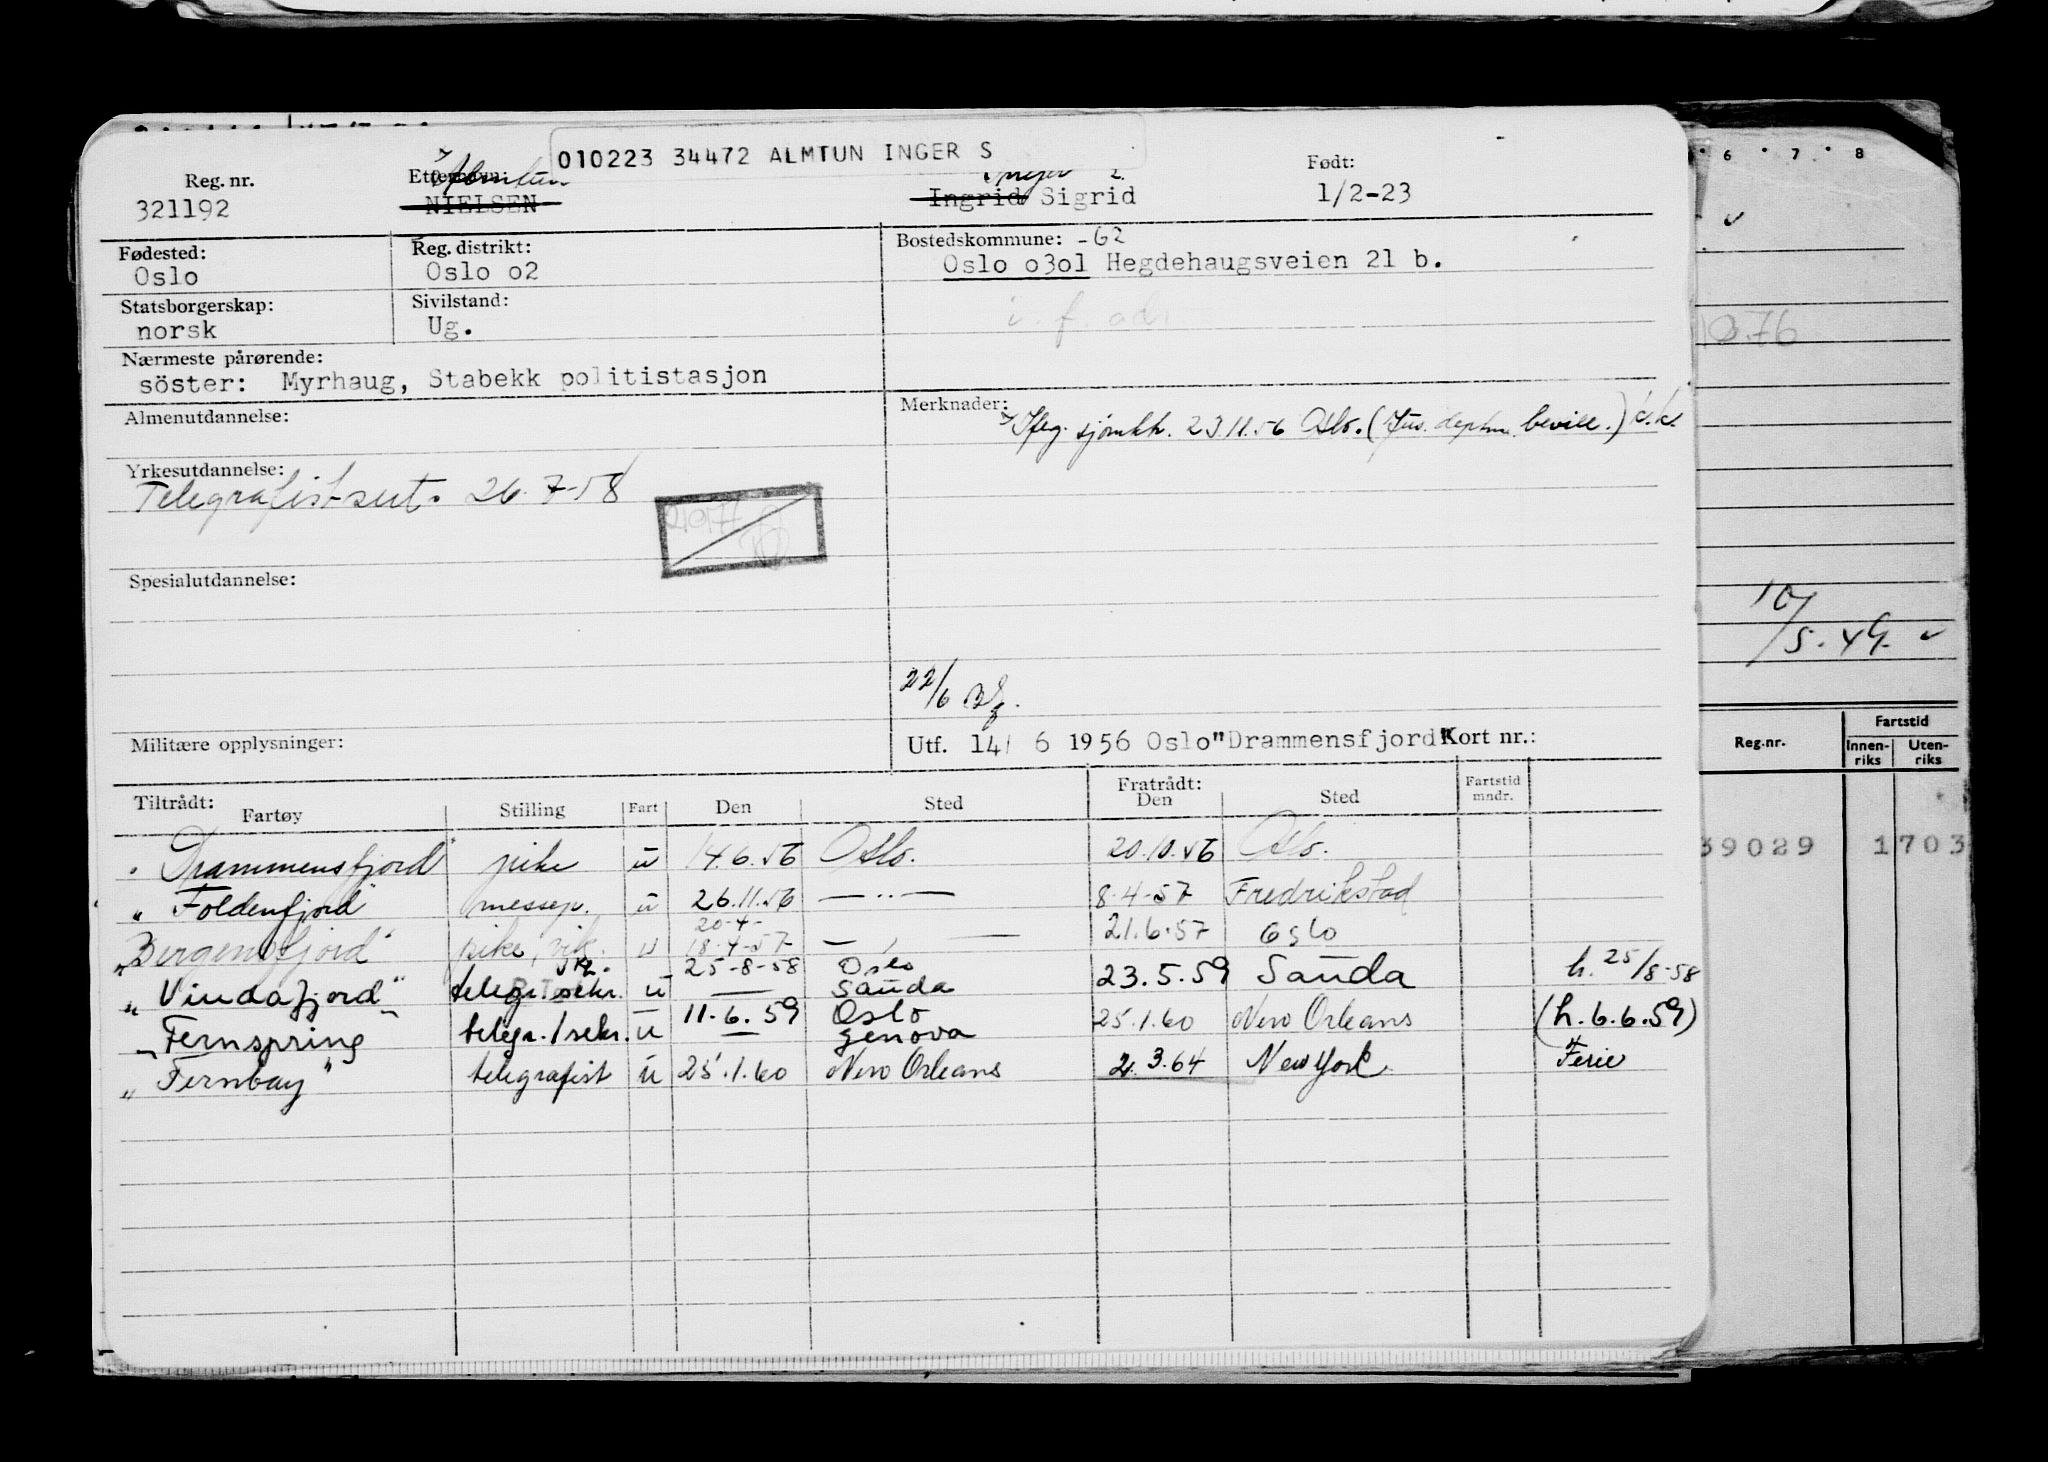 010223 34472 ALMTUN INGER S
Reg. nr. Etternavn: Almtun Inger 2. Født:
321192 NIELSEN Ingrid Sigrid 1/2-23
Fødested: Reg. distrikt: Bostedskommune: -62
Oslo Oslo o2 Oslo o3o1 Hegdehaugsveien 21 b.
Statsborgerskap: Sivilstand: i. f. adr.
norsk Ug.
Nærmeste pårørende:
söster: Myrhaug, Stabekk politistasjon
Almenutdannelse: Merknader:
Iflg. sjømkk. 23.11.56 Oslo. (Jus. deptm. bevill.)
Yrkesutdannelse:
Telegrafist-sert. 26.7-58
Spesialutdannelse:
22/6
Militære opplysninger: Utf. 14/ 6 1956 Oslo "Drammensfjord" Kort nr.:
Tiltrådt: Fratrådt: Fartstid
Fartøy Stilling Fart Den Sted Den Sted mndr.
" Drammensfjord" pike u 14.6.56 Oslo. 20.10.56 Oslo.
" Foldenfjord" messep. u 26.11.56 — " — 8-4-57 Fredrikstad
20-4-
"Bergensfjord" pike, vik. u 18-4-57 — " — 21.6.57 Oslo
25-8-58 Oslo h. 25/8-58
" Vindafjord" telegr. sekr. u — Sauda 23.5.59 Sauda
11-6.59 Oslo
" Fernspring telegr./sekr. u — Genova 25.1.60 New Orleans (h.6.6.59)
" Fernbay" telegrafist u 25.1.60 New Orleans 2.3.64 New York Ferie
6 7 8
10.76
10/5.49
Fartstid
Reg.nr. Innen- Uten-
riks riks
39029 1703